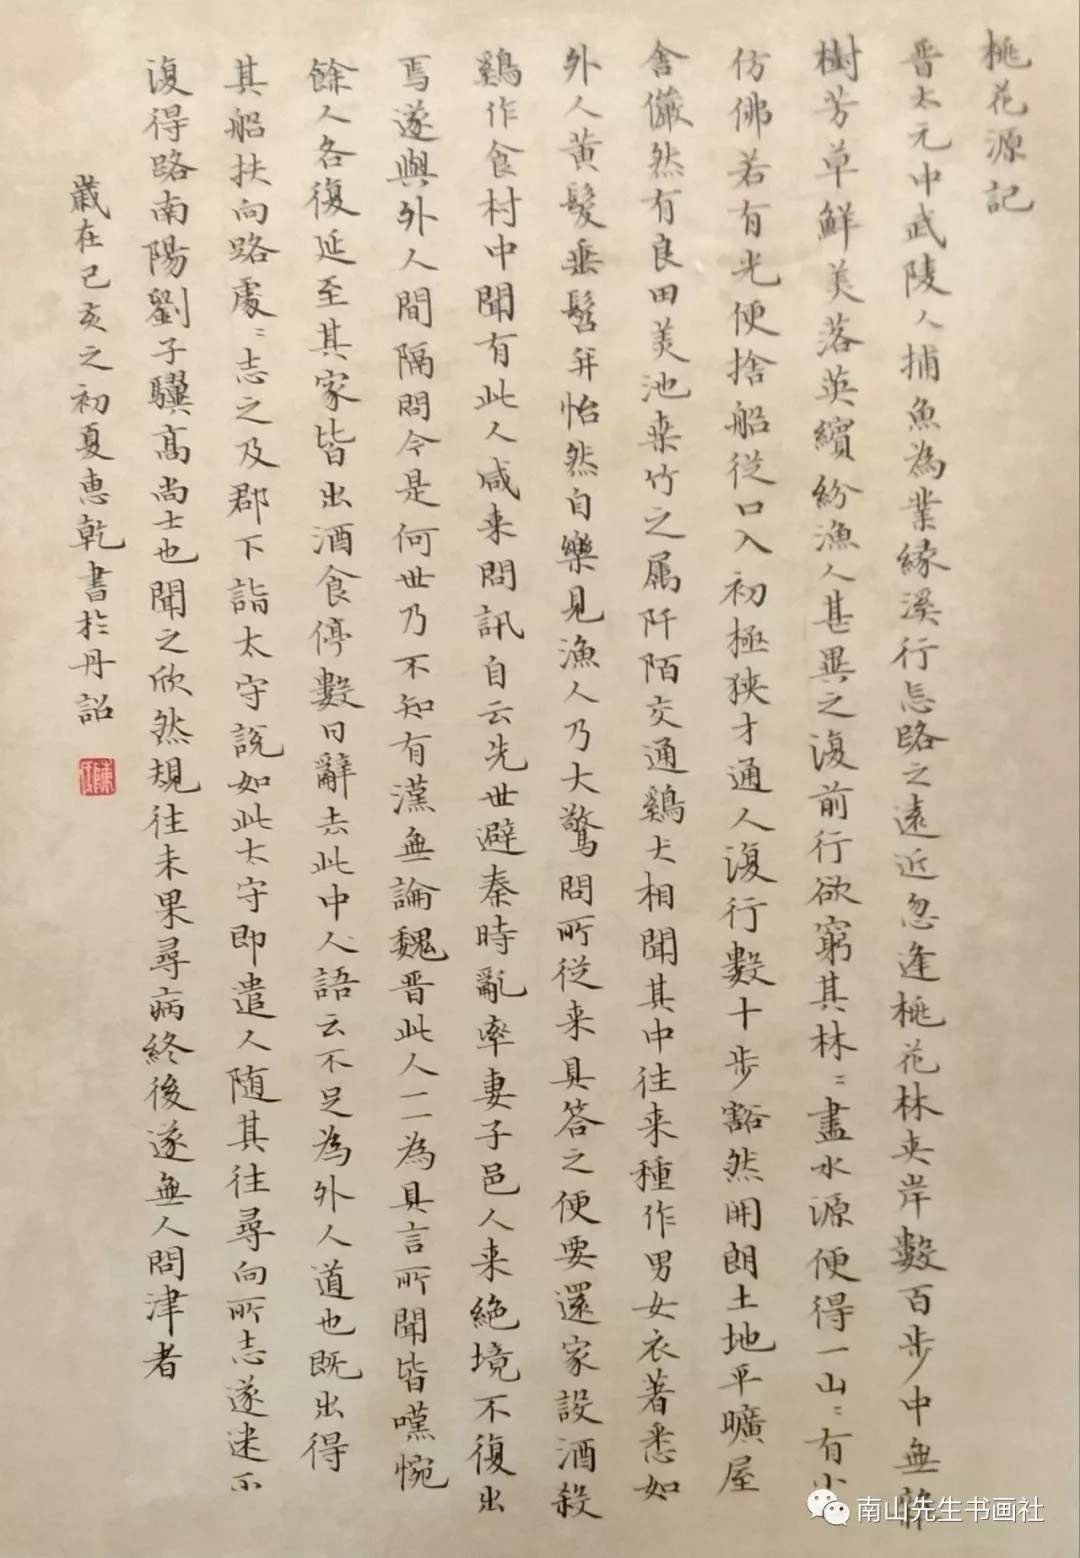 桃花源記
晉太元中武陵人捕魚為業緣溪行忘路之遠近忽逢桃花林夾岸數百步中無雜
樹芳草鮮美落英繽紛漁人甚異之復前行欲窮其林〻盡水源便得一山〻有小
仿佛若有光便捨船從口入初極狹才通人復行數十步豁然開朗土地平曠屋
舍儼然有良田美池桑竹之屬阡陌交通鷄犬相聞其中往来種作男女衣著悉如
外人黃髮垂髫并怡然自樂見漁人乃大驚問所從来具答之便要還家設酒殺
鷄作食村中聞有此人咸来問訊自云先世避秦時亂率妻子邑人来絕境不復出
焉遂與外人間隔問今是何世乃不知有漢無論魏晉此人一一為具言所聞皆嘆惋
餘人各復延至其家皆出酒食停數日辭去此中人語云不足為外人道也既出得
其船扶向路處〻志之及郡下詣太守說如此太守即遣人隨其往尋向所志遂迷不
復得路南陽劉子驥高尚士也聞之欣然規往未果尋病終後遂無人問津者
歲在己亥之初夏惠乾書於丹詔
南山先生书画社